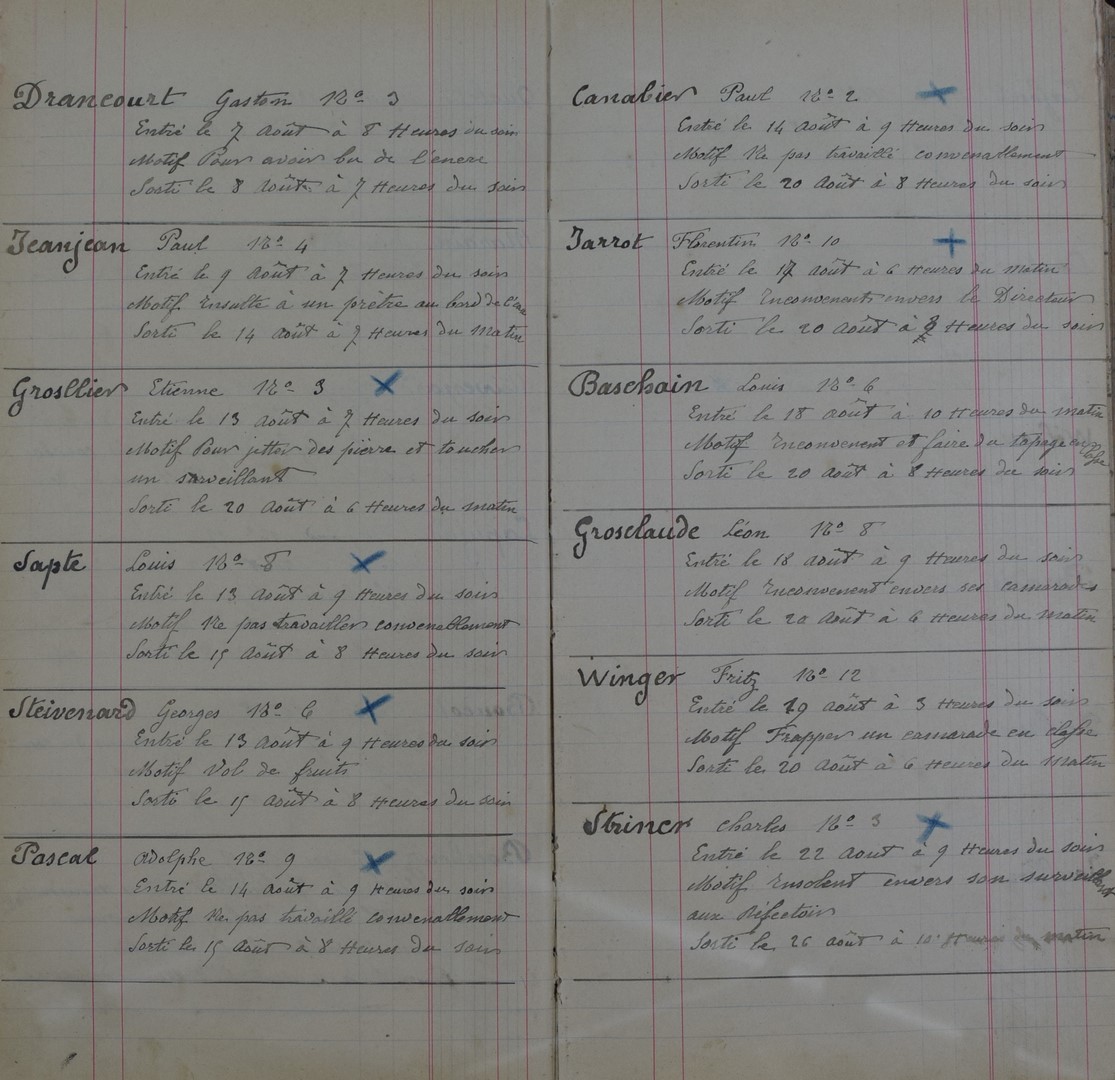 Drancourt Gaston No 3
Entré le 7 Août à 8 Heures du soir
Motif Pour avoir bu de l'encre
Sorti le 8 Août à 7 Heures du soir
Jeanjean Paul No 4
Entré le 9 Août à 7 Heures du soir
Motif Insulte à un prètre au bord de l'eau
Sorti le 14 Août à 7 Heures du Matin
Grosllier Etienne No 3
Entré le 13 Août à 7 Heures du soir
Motif Pour jetter des pierre et toucher
un surveillant
Sorti le 20 Août à 6 Heures du matin
Sapte Louis No 8
Entré le 13 Août à 9 Heures du soir
Motif Ne pas travailler convenablement
Sorti le 15 Août à 8 Heures du soir
Steivenard Georges No 6
Entré le 13 Août à 9 Heures du soir
Motif Vol de fruits
Sorti le 15 Août à 8 Heures du soir
Pascal Adolphe No 9
Entré le 14 Août à 9 Heures du soir
Motif Ne pas travaillé convenablement
Sorti le 15 Août à 8 Heures du soir
Canalier Paul No 2
Entré le 14 Août à 9 Heures du soir
Motif Ne pas travaillé convenablement
Sorti le 20 Août à 8 Heures du soir
Jarrot Florentin No 10
Entré le 17 Août à 6 Heures du Matin
Motif Inconvenent envers le Directeur
Sorti le 20 Août à 8 Heures du soir
Baschain Louis No 6
Entré le 18 Août à 10 Heures du matin
Motif Inconvenent et faire du tapage en
Sorti le 20 Août à 8 Heures du soir
Grosclaude Léon No 8
Entré le 18 Août à 9 Heures du soir
Motif Inconvenent envers ses camarades
Sorti le 20 Août à 6 Heures du matin
Winger Fritz No 12
Entré le 19 Août à 3 Heures du soir
Motif Frapper un camarade en classe
Sorti le 20 Août à 6 Heures du Matin
Striner Charles No 3
Entré le 22 Aout à 9 Heures du soir
Motif Insolent envers son surveillant
aux Réfectoir
Sorti le 26 Août à 10 Heures du matin